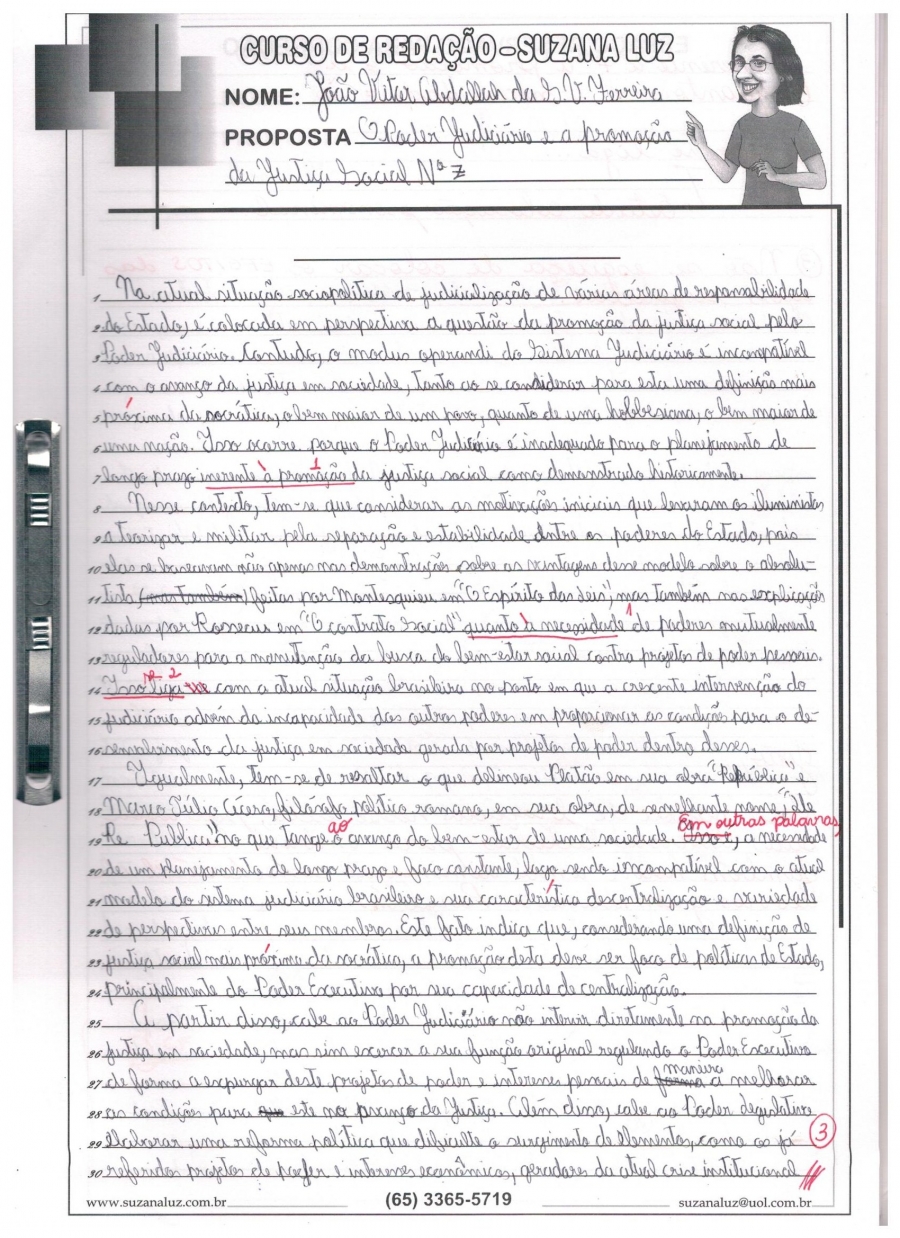 CURSO DE REDAÇÃO - SUZANA LUZ
NOME: João Vitor Abdallah da S.V. Ferreira
PROPOSTA O Poder Judiciário e a promoção
da Justiça Social Nº 7
1 Na atual situação sociopolítica de judicialização de várias áreas de responsabilidade
2 do Estado, é colocada em perspectiva a questão da promoção da justiça social pelo
3 Poder Judiciário. Contudo, o modus operandi do Sistema Judiciário é incompatível
4 com o avanço da justiça em sociedade, tanto ao se considerar para esta uma definição mais
5 próxima da socrática, o bem maior de um povo, quanto de uma hobbesiana, o bem maior de
6 uma nação. Isso ocorre porque o Poder Judiciário é inadequado para o planejamento de
7 longo prazo inerente à promoção da justiça social como demonstrado historicamente.
1
8 Nesse contexto, tem-se que considerar as motivações iniciais que levaram os iluministas
9 a teorizar e militar pela separação e estabilidade dntre os poderes do Estado, pois
10 elas se baseavam não apenas nas demonstrações sobre as vantagens desse modelo sobre o absolu-
11 tista (mas também) feitas por Montesquieu em "O Espírito das Leis", mas também nas explicações
12 dadas por Rosseau em "O contrato Social" quanto à necessidade de poderes mutualmente
1
13 reguladores para a manutenção da busca do bem-estar social contra projetos de poder pessoais.
14 Isso liga-se com a atual situação brasileira no ponto em que a crescente intervenção do
2
15 judiciário advém da incapacidade dos outros poderes em proporcionar as condições para o de-
16 senvolvimento da justiça em sociedade gerada por projetos de poder dentro desses.
17 Igualmente, tem-se de ressaltar o que delineou Platão em sua obra "República" e
18 Marco Túlio Cícero, filósofo político romano, em sua obra, de semelhante nome, "De
19 Re Publica" no que tange ao avanço do bem-estar de uma sociedade. Em outras palavras, a necessidade
20 de um planejamento de longo prazo e foco constante, logo sendo incompatível com o atual
21 modelo do sistema judiciário brasileiro e sua característica descentralização e variedade
22 de perspectivas entre seus membros. Este fato indica que, considerando uma definição de
23 justiça social mais próxima da socrática, a promoção desta deve ser foco de políticas de Estado,
24 principalmente do Poder Executivo por sua capacidade de centralização.
25 A partir disso, cabe ao Poder Judiciário não intervir diretamente na promoção da
26 justiça em sociedade, mas sim exercer a sua função original regulando o Poder Executivo
27 de forma a expurgar deste projetos de poder e interesses pessoais de forma maneira a melhorar
28 as condições para que este no avanço da Justiça. Além disso, cabe ao Poder Legislativo
29 elaborar uma reforma política que dificulte o surgimento de elementos, como os já
3
30 referidos projetos de poder e interesses econômicos, geradores da atual crise institucional
www.suzanaluz.com.br (65) 3365-5719 suzanaluz@uol.com.br